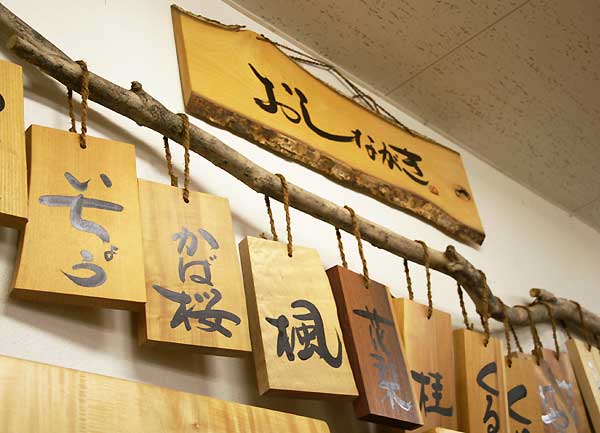 おしながき
いちょう
かば
桜
楓
花梨
桂
くる